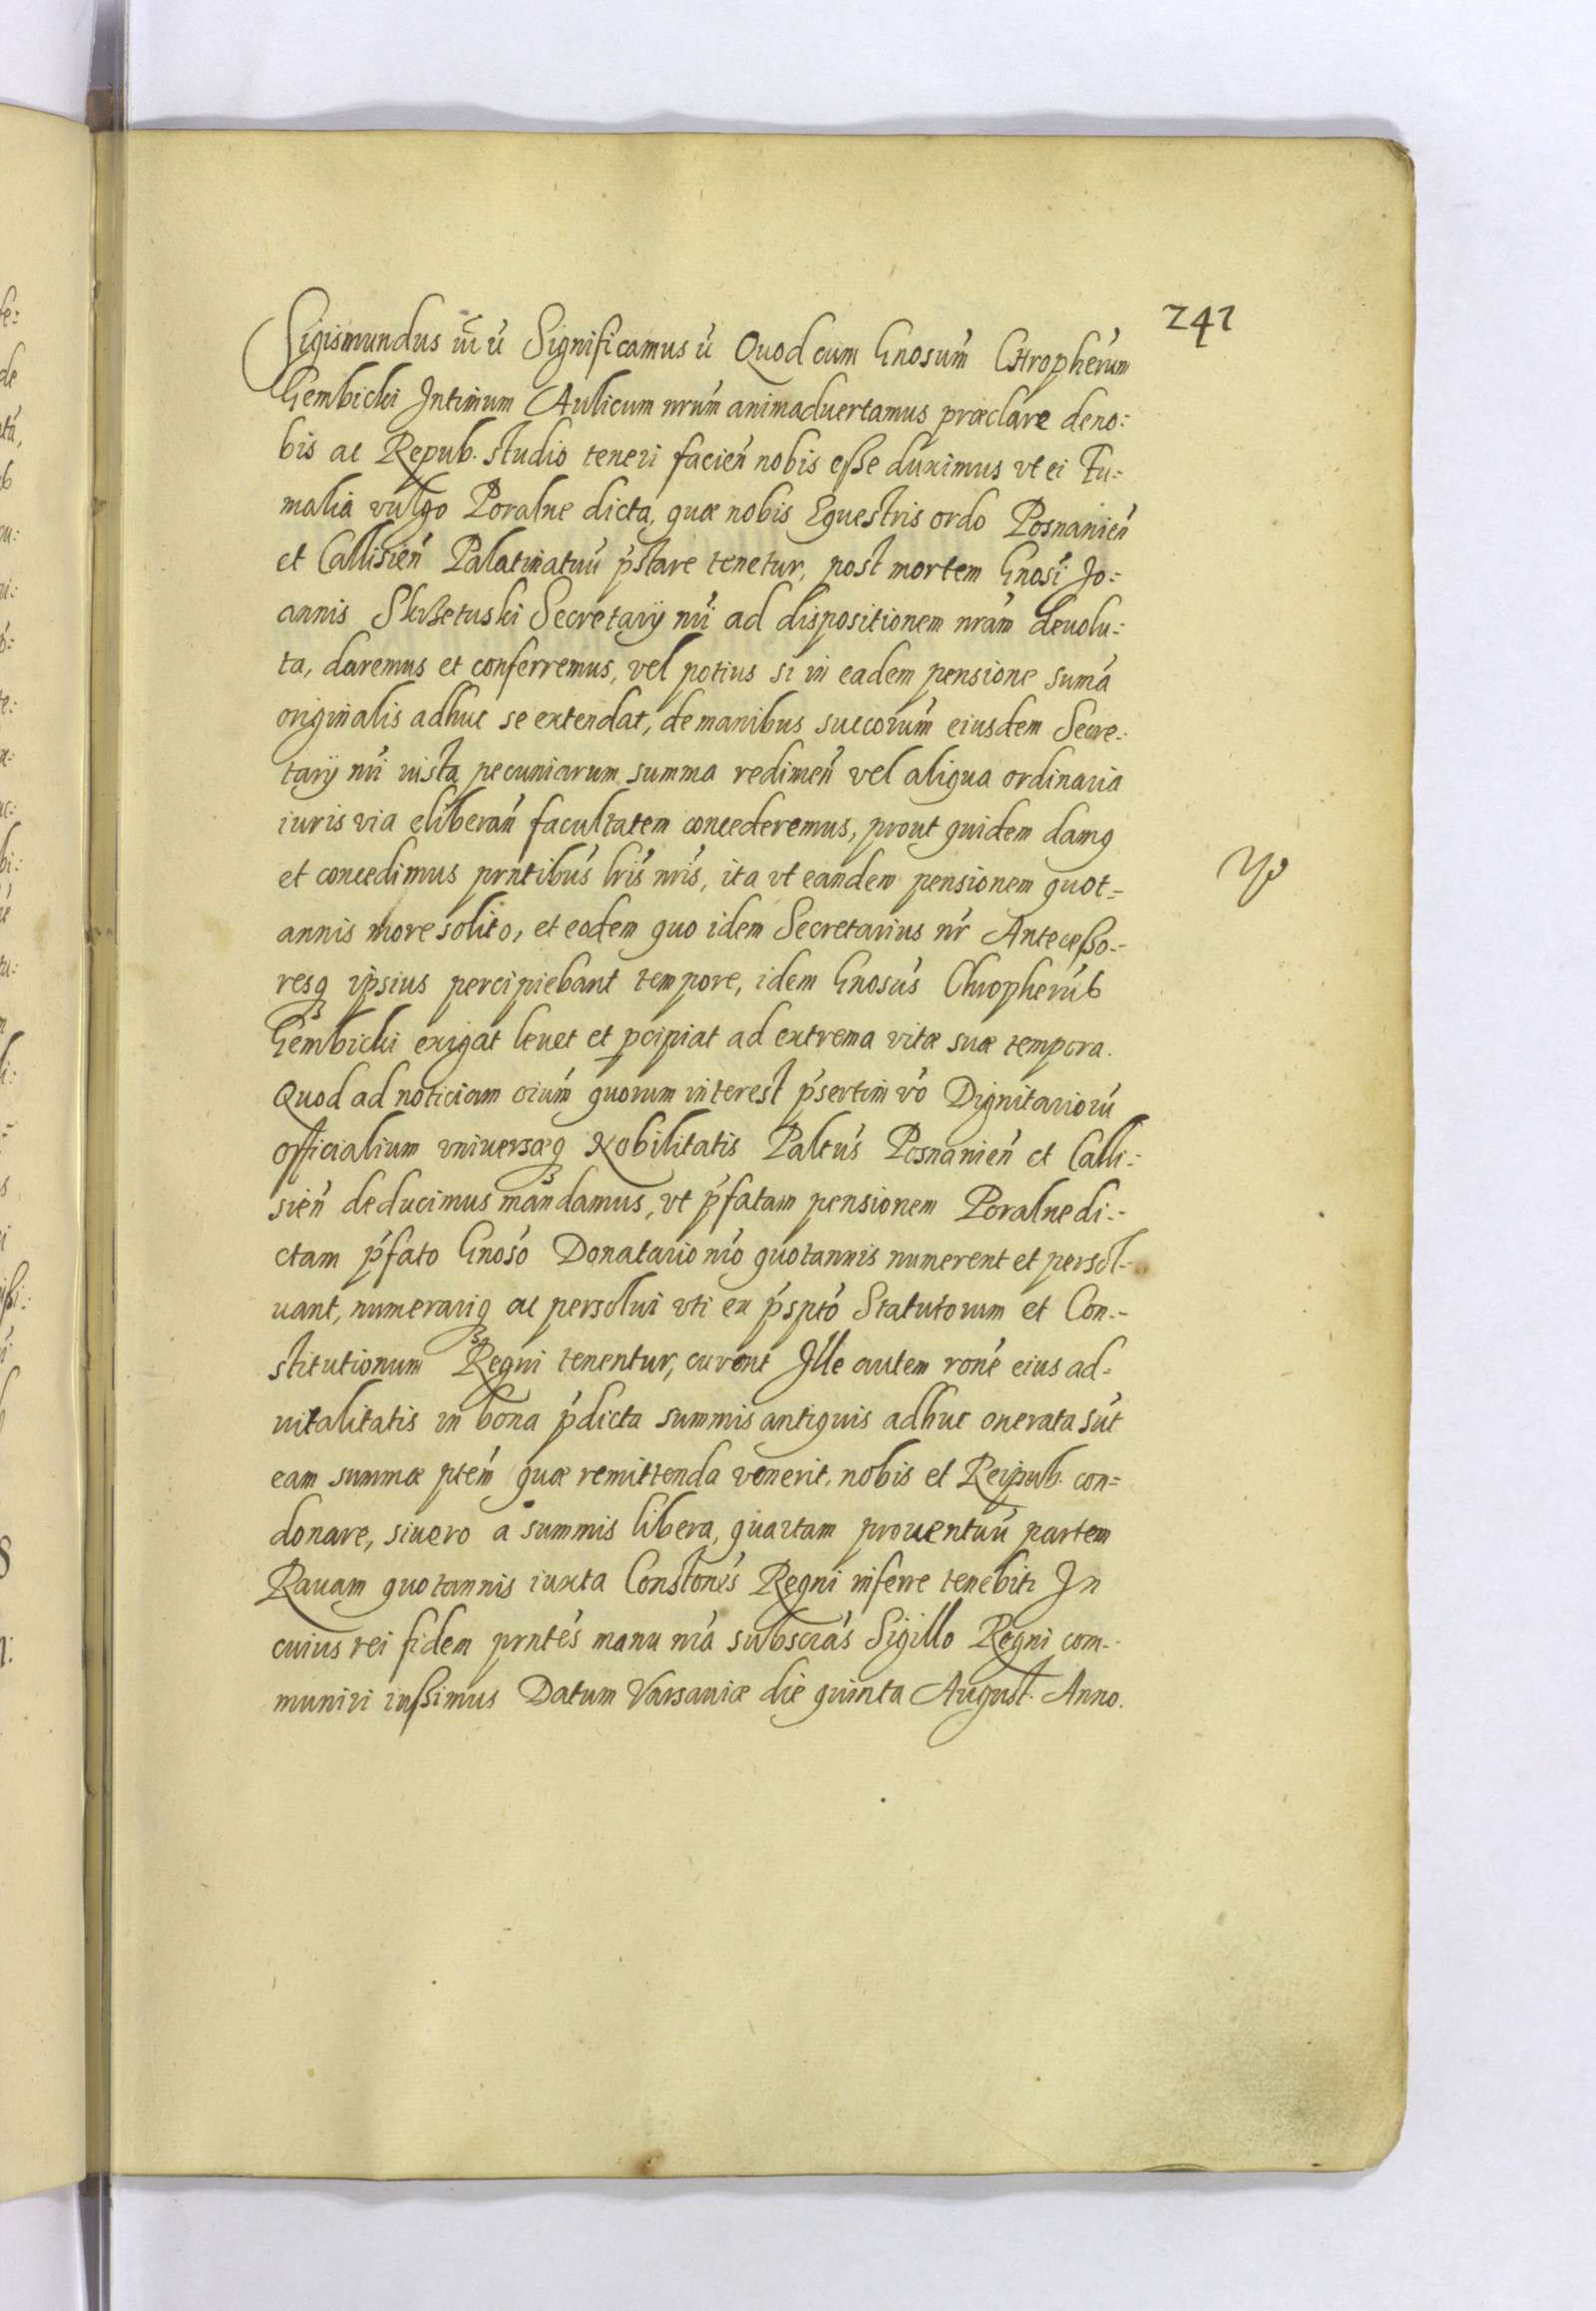 241
Sigismundus m̃ ũ Significamus ũ Quod cum Gnosum̃ Chropherũm
Gembicki Intimum Aulicum nrum̃ animaduertamus præclare de no:
bis ac Repub. studio teneri facień nobis eße duximus vt ei Fu:
malia vulgo Poralne dicta, quæ nobis Equestris ordo Posnanień
et Callisień Palatinatuũ p̃stare tenetur, post mortem Gnosĩ Jo:
annis Skrzetuski Secretarij nrĩ ad dispositionem nrãm deuolu:
ta, daremus et conferremus, vel potius si in eadem pensione sumã
originalis adhuc se extendat, de manibus succorum̃ eiusdem Secre:
tarij nrĩ iusta pecuniarum summa redimeñ vel aliqua ordinaria
iuris via eliberañ facultatem concederemus, prout quidem damq
et concedimus prntibus̃ lrĩs nrĩs, ita vt eandem pensionem quot=
annis more solito, et eodem quo idem Secretarius nr̃ Anteceßo:
resq ipsius percipiebant tempore, idem Gnosus̃ Chropherũs
Gembicki exigat leuet et pcipiat ad extrema vitæ suæ tempora.
Quod ad noticiam oium̃ quorum interest p̃sertim võ Dignitarioru̇
officialium vniversæq Nobilitatis Paltus̃ Posnanień et Calli:
sień deducimus mandamus, vt p̃fatam pensionem Poralne di:
ctam p̃fato Gnosõ Donatario nrõ quotannis numerent et persol:
uant, numerariq ac persolui vti ex p̃sptõ Statutorum et Con:
stitutionum Regni tenentur, curent Ille autem ronẽ eius ad=
uitalitatis in bona p̃dicta summis antiquis adhuc onerata sũt
eam summæ ptem̃ quæ remittenda venerit, nobis et Reipub. con=
donare, si vero a summis libera, quartam prouentuũ partem
Rauam quotannis iuxta Constonẽs Regni inferre tenebit In
cuius rei fidem prntẽs manu nrã subscrãs Sigillo Regni com:
muniri iußimus Datum Varsauiæ die quinta August. Anno.